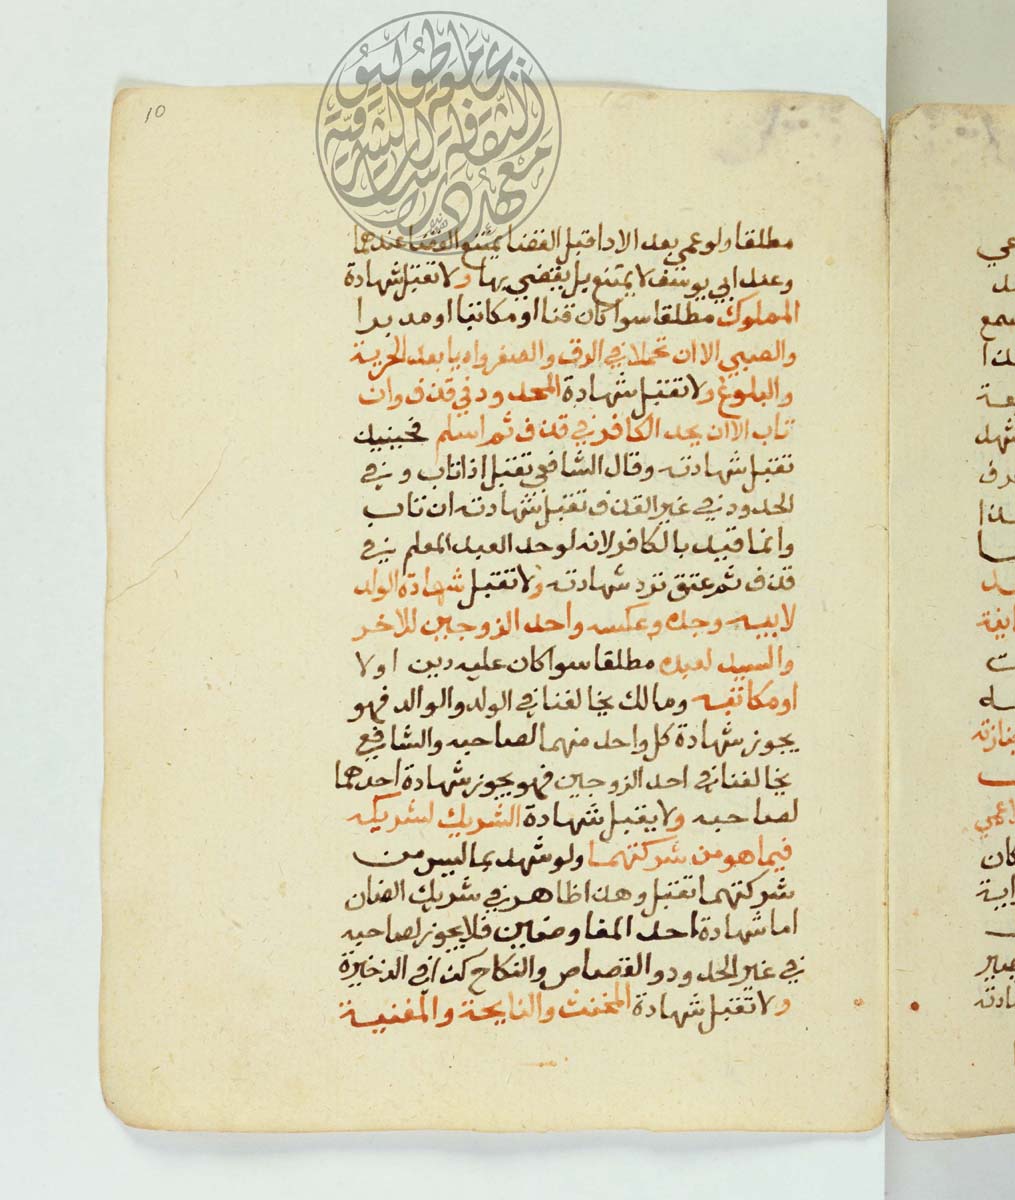 10
جامعة طوكيو
معهد دراسات الثقافة الشرقية
مطلقا ولو عمي بعد الادا قبل القضا يمتنع القضا عندهما
وعند ابي يوسف لا يمتنع بل يقضي بها ولا تقبل شهادة
المملوك مطلقا سوا كان قنا او مكاتبا او مدبرا
والصبي الا ان تحملا في الرق والصغر واديا بعد الحرية
والبلوغ ولا تقبل شهادة المحدود في قذف وان
تاب الا ان يحد الكافر في قذف ثم اسلم فحينيذ
تقبل شهادته وقال الشافعي تقبل اذا تاب وفي
الحدود في غير القذف تقبل شهادته ان تاب
وانما قيد بالكافر لانه لو حد العبد المعلم في
قذف ثم عتق ترد شهادته ولا تقبل شهادة الولد
لابيه وجده وعكسه واحد الزوجين للاخر
والسيد لعبده مطلقا سوا كان عليه دين اولا
او مكاتبه ومالك يخالفنا في الولد والوالد فهو
يجوز شهادة كل واحد منهما لصاحبه والشافعي
يخالفنا في احد الزوجين فهو يجوز شهادة احدهما
لصاحبه ولا يقبل شهادة الشريك لشريكه
فيما هو من شركتهما ولو شهد بما ليس من
شركتهما تقبل وهذا ظاهر في شريك العنان
اما شهادة احد المفاوضين فلا يجوز لصاحبه
في غير الحدود والقصاص والنكاح كذا في الذخيرة
ولا تقبل شهادة المخنث والنايحة والمغنية